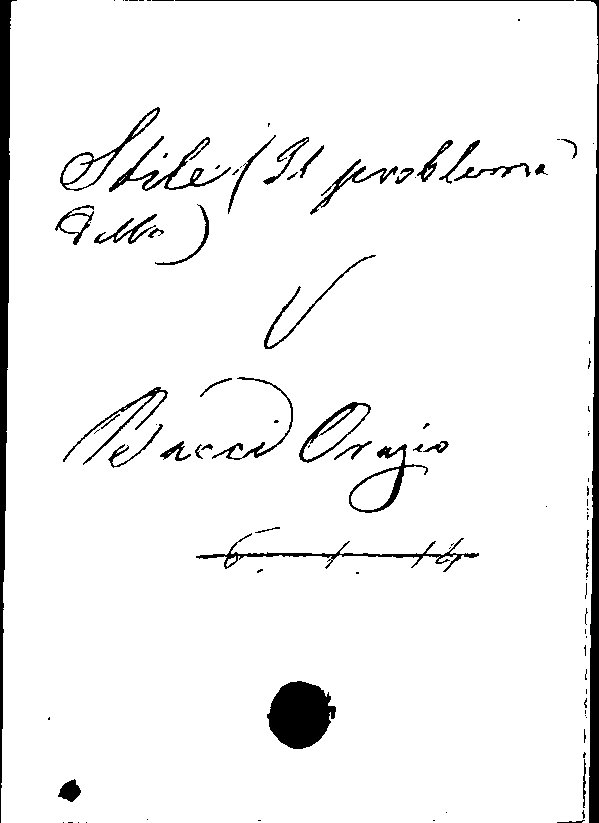 Stile (Il problema
dello)
V
Bacci Orazio
6. 1. 14